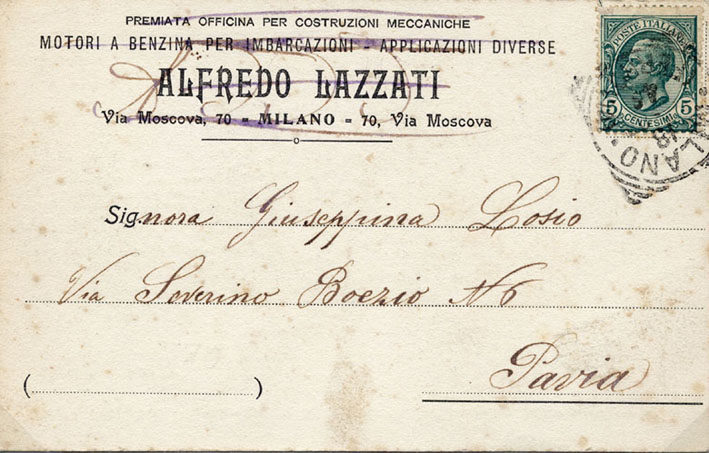 PREMIATA OFFICINA PER COSTRUZIONI MECCANICHE
MOTORI A BENZINA PER IMBARCAZIONI - APPLICAZIONI DIVERSE
ALFREDO LAZZATI
Via Moscova, 70 - MILANO - 70, Via Moscova
POSTE ITALIANE
5 CENTESIMI 5
MILANO
Signora Giuseppina Losio
Via Severino Boezio N 6
( )
Pavia